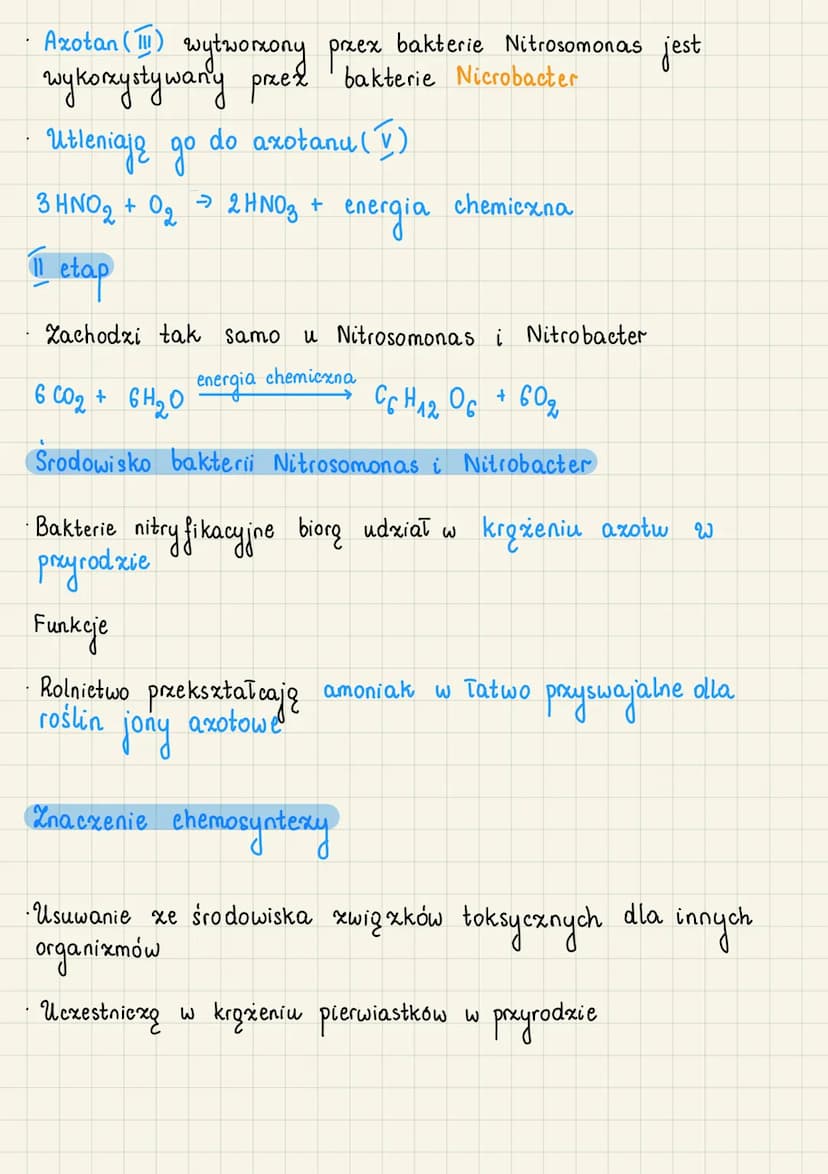 · Azotan (III) wytworzony przez bakterie Nitrosomonas jest
wykorzystywany przez bakterie Nicrobacter
· Utleniają go do azotanu (V)
3 HNO₂ + O₂ → 2 HNO₃ + energia chemiczna
II etap
· Zachodzi tak samo u Nitrosomonas i Nitrobacter
6 CO₂ + 6H₂O energia chemiczna → C₆H₁₂O₆ + 6O₂
Środowisko bakterii Nitrosomonas i Nitrobacter
· Bakterie nitryfikacyjne biorą udział w krążeniu azotu w
przyrodzie
Funkcje
· Rolnictwo przekształcają amoniak w łatwo przyswajalne dla
roślin jony azotowe
Znaczenie chemosyntezy
· Usuwanie ze środowiska związków toksycznych dla innych
organizmów
· Uczestniczą w krążeniu pierwiastków w przyrodzie